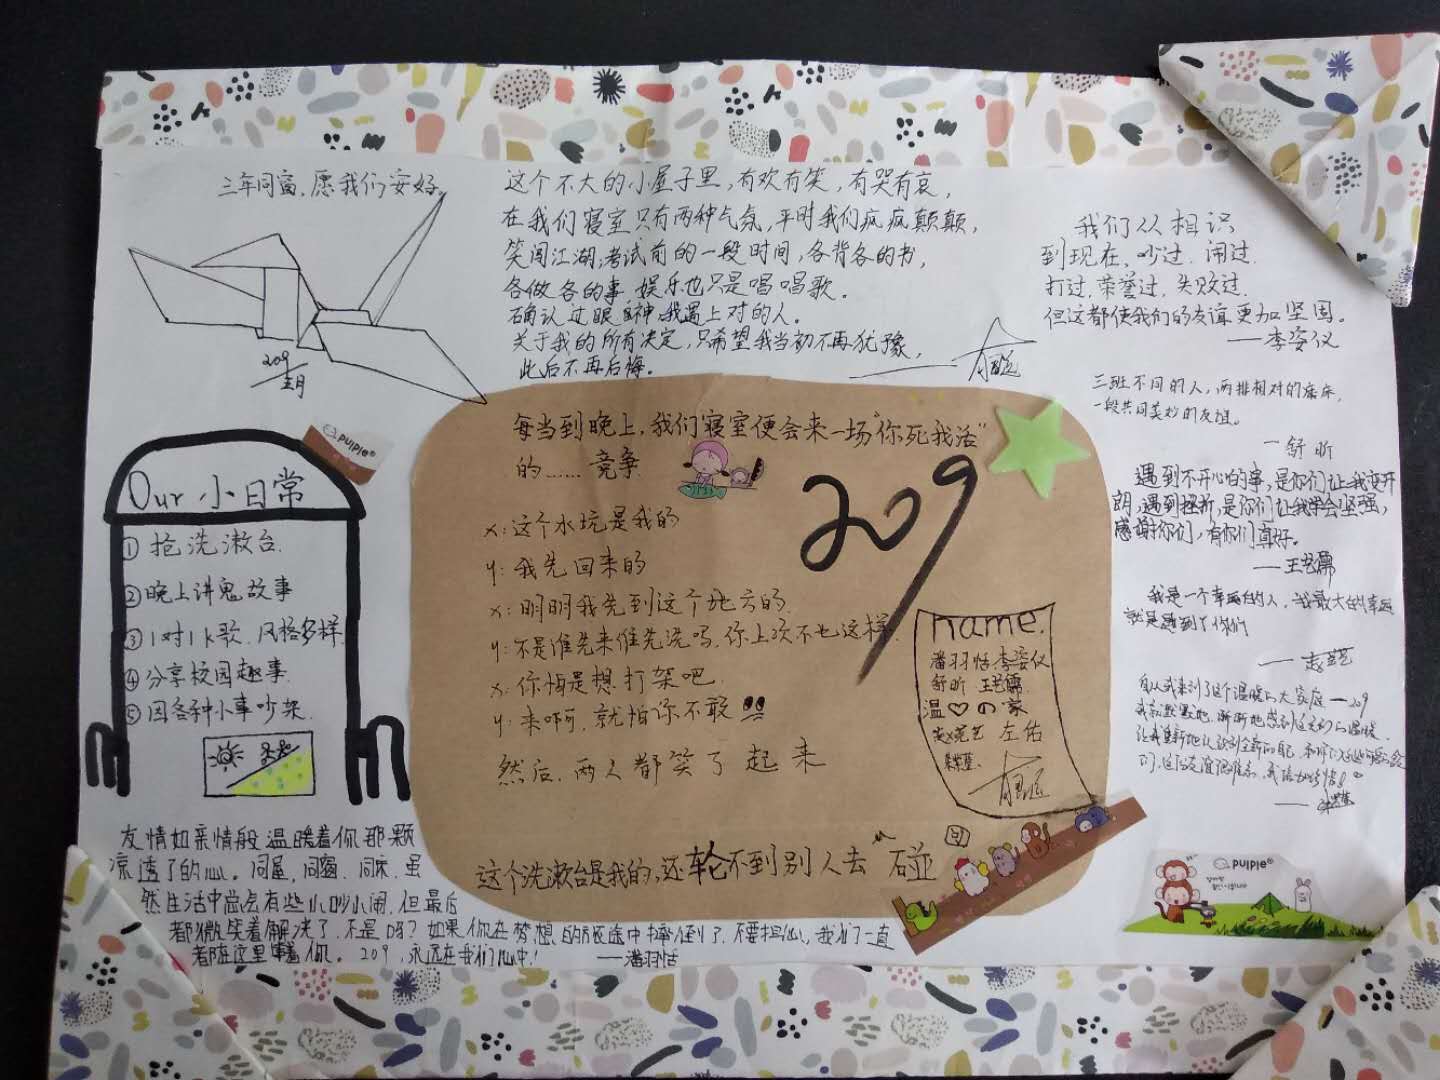 三年同窗，愿我们安好。
209
这个不大的小屋子里，有欢有笑，有哭有哀，
在我们寝室只有两种气氛，平时我们疯疯颠颠，
笑闯江湖，考试前的一段时间，各背各的书，
各做各的事，娱乐也只是唱唱歌。
确认过眼神，我遇上对的人。
关于我的所有决定，只希望我当初不再犹豫，
此后不再后悔。
我们从相识
到现在、吵过、闹过、
打过、荣誉过、失败过，
但这都使我们的友谊更加坚固。
——李姿仪
三班不同的人，两排相对的床床，
一段共同美妙的友谊。
—舒昕
遇到不开心的事，是你们让我变开
朗，遇到挫折，是你们让我学会坚强，
感谢你们，有你们真好。
——王艺儒
我是一个幸运的人，我最大的幸运
就是遇到了你们
自从我来到了这个温暖的大家庭——209
PUIPIE®
Our 小日常
① 抢洗漱台.
②晚上讲鬼故事
③ 1对1k歌，风格多样
④分享校园趣事
⑤因各种小事吵架.
每当到晚上，我们寝室便会来一场“你死我活”
的……竞争
209
x：这个水坑是我的
y：我先回来的
x：明明我先到这个地方的
y：不是谁先来谁先洗吗，你上次不也这样
x：你怕是想打架吧
y：来啊，就怕你不敢
然后，两人都笑了起来
这个洗漱台是我的，还轮不到别人去“碰”
name.
潘羽恬 李姿仪
舒昕 王艺儒
温♡の家
左佑
友情如亲情般温暖着你那颗
凉透了的心。同屋，同窗，同床，虽
然生活中总会有些小吵小闹，但最后
都微笑着解决了，不是吗？如果你在梦想的旅途中摔倒了，不要担心，我们一直
都在这里等着你。209，永远在我们心中！ ——潘羽恬
PUIPIE®